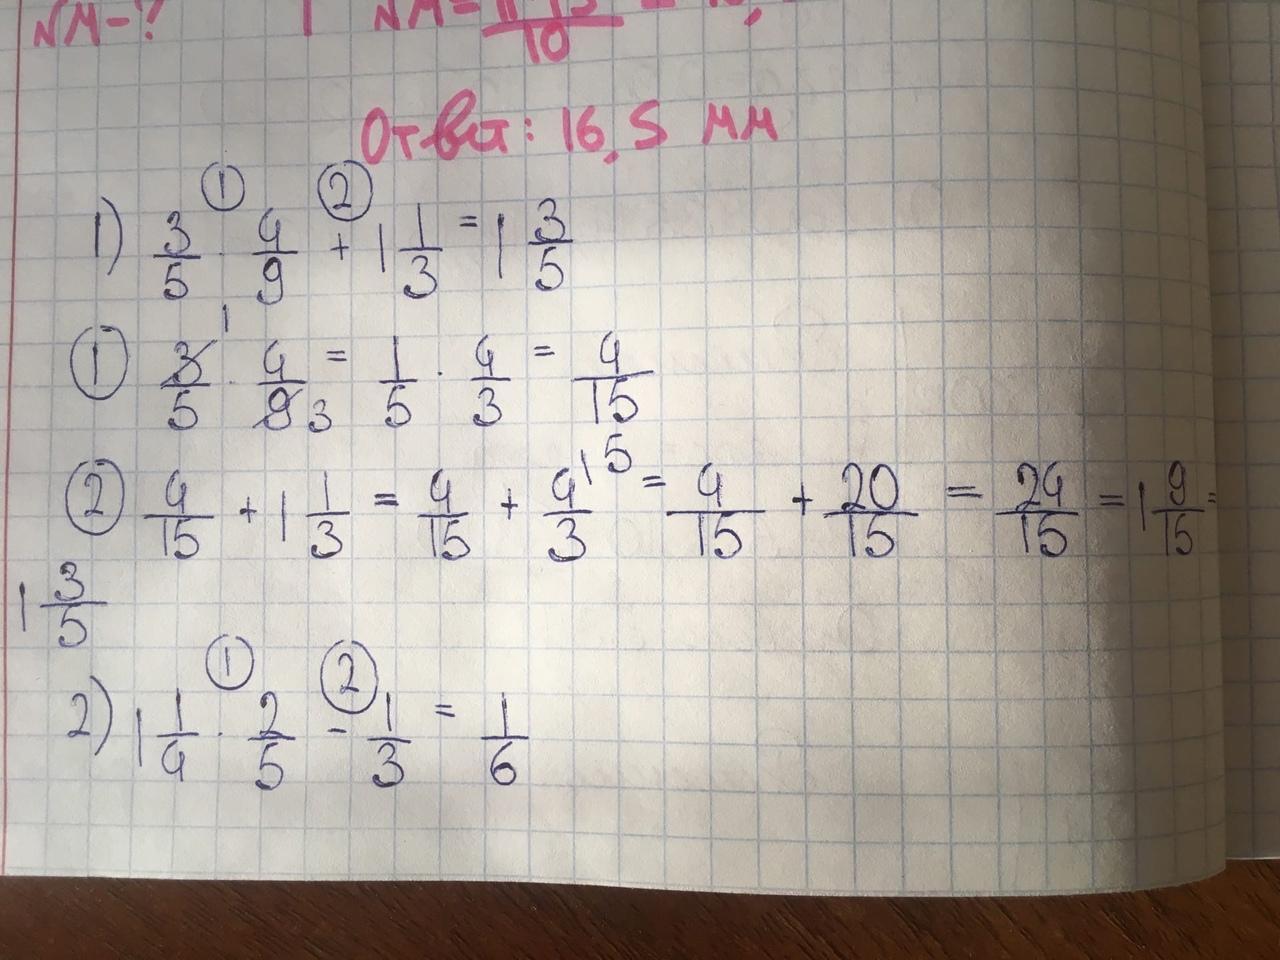 NM-? NM= 10
Ответ: 16,5 мм
① ②
1) 3/5 · 4/9 + 1 1/3 = 1 3/5
① 3/5 ¹ · 4/9 3 = 1/5 · 4/3 = 4/15
② 4/15 + 1 1/3 = 4/15 + 4/3 ⁵ = 4/15 + 20/15 = 24/15 = 1 9/15 =
1 3/5
① ②
2) 1 1/4 · 2/5 - 1/3 = 1/6